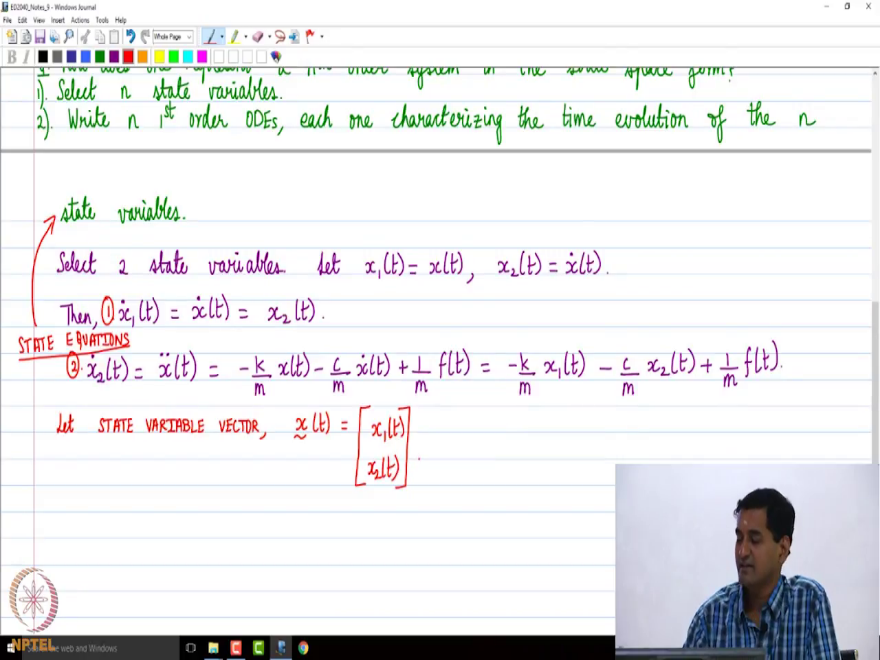 ED2040_Notes_9 - Windows Journal
File Edit View Insert Actions Tools Help
Whole Page
B I
order system in the
1). Select n state variables.
2). Write n 1st order ODEs, each one characterizing the time evolution of the n
state variables.
Select 2 state variables. Let x₁(t) = x(t), x₂(t) = ẋ(t).
Then, ① ẋ₁(t) = ẋ(t) = x₂(t).
STATE EQUATIONS
②. ẋ₂(t) = ẍ(t) = -k/m x(t) - c/m ẋ(t) + 1/m f(t) = -k/m x₁(t) - c/m x₂(t) + 1/m f(t).
Let STATE VARIABLE VECTOR, x̰(t) = [x₁(t)
x₂(t)].
NPTEL
the web and Windows